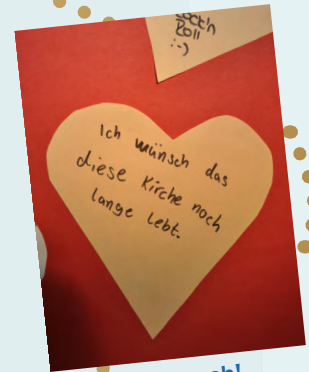 Roll
:-)
Ich wünsch das
diese Kirche noch
lange lebt.